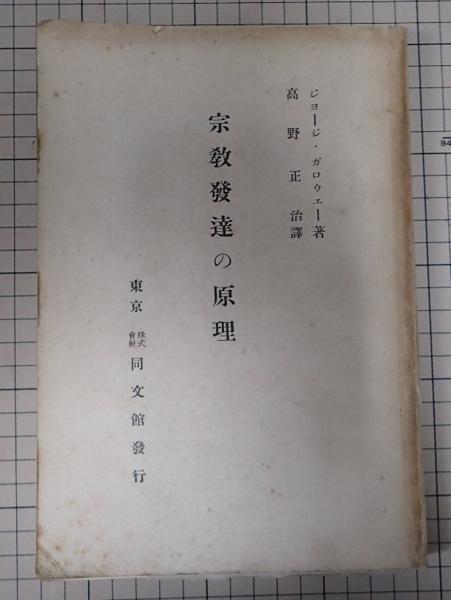 ジョージ・ガロウェー著
高野正治譯
宗教發達の原理
東京 株式會社 同文館發行